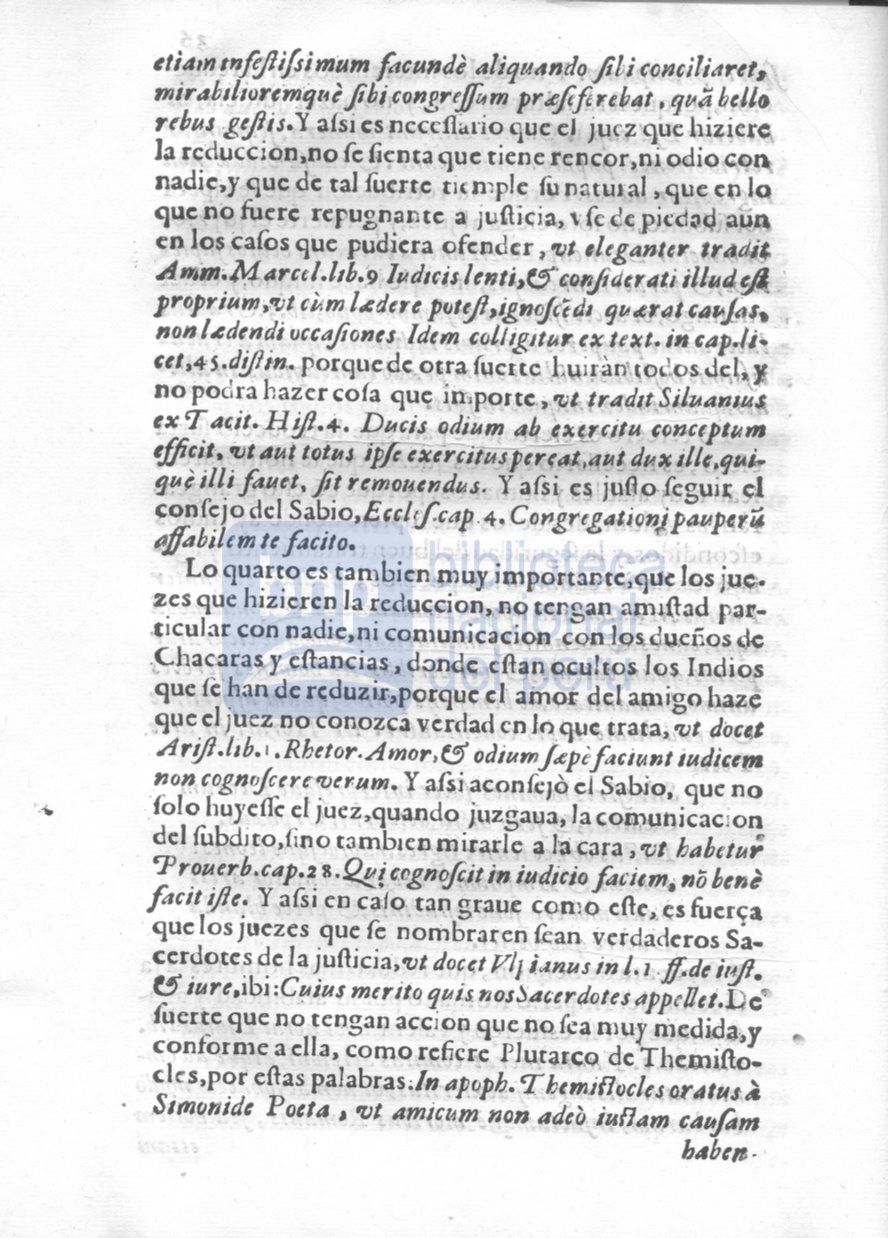 etiam infestißimum facundè aliquando sibi conciliaret,
mirabilioremquè sibi congressum præseferebat, quã bello
rebus gestis. Y aſsi es neceſſario que el juez que hiziere
la reduccion, no ſe ſienta que tiene rencor, ni odio con
nadie, y que de tal ſuerte tiemple ſu natural, que en lo
que no fuere repugnante a juſticia, vſe de piedad aun
en los caſos que pudiera ofender, vt eleganter tradit
Amm. Marcel. lib. 9 Iudicis lenti, & conſiderati illud eſt
proprium, vt cùm lædere poteſt, ignoſcẽdi quærat cauſas,
non lædendi occaſiones Idem colligitur ex text. in cap. li-
cet, 45. diſtin. porque de otra ſuerte huiràn todos del, y
no podra hazer coſa que importe, vt tradit Siluanius
ex Tacit. Hiſt. 4. Ducis odium ab exercitu conceptum
efficit, vt aut totus ipſe exercitus pereat, aut dux ille, qui-
què illi fauet, ſit remouendus. Y aſsi es juſto ſeguir el
conſejo del Sabio, Eccleſ. cap. 4. Congregationi pauperũ
affabilem te facito.
Lo quarto es tambien muy importante, que los jue-
zes que hizieren la reduccion, no tengan amiſtad par-
ticular con nadie, ni comunicacion con los dueños de
Chacaras y eſtancias, donde eſtan ocultos los Indios
que ſe han de reduzir, porque el amor del amigo haze
que el juez no conozca verdad en lo que trata, vt docet
Ariſt. lib. 1. Rhetor. Amor, & odium ſæpè faciunt iudicem
non cognoſcere verum. Y aſsi aconſejò el Sabio, que no
ſolo huyeſſe el juez, quando juzgaua, la comunicacion
del ſubdito, ſino tambien mirarle a la cara, vt habetur
Prouerb. cap. 28. Qui cognoſcit in iudicio faciem, nõ benè
facit iſte. Y aſsi en caſo tan graue como eſte, es fuerça
que los juezes que ſe nombraren ſean verdaderos Sa-
cerdotes de la juſticia, vt docet Vlpianus in l. 1. ff. de iuſt.
& iure, ibi: Cuius merito quis nos Sacerdotes appellet. De
ſuerte que no tengan accion que no ſea muy medida, y
conforme a ella, como refiere Plutarco de Themiſto-
cles, por eſtas palabras. In apoph. Themiſtocles oratus à
Simonide Poeta, vt amicum non adeò iuſtam cauſam
haben-
biblioteca
nacional
del perú
bnp